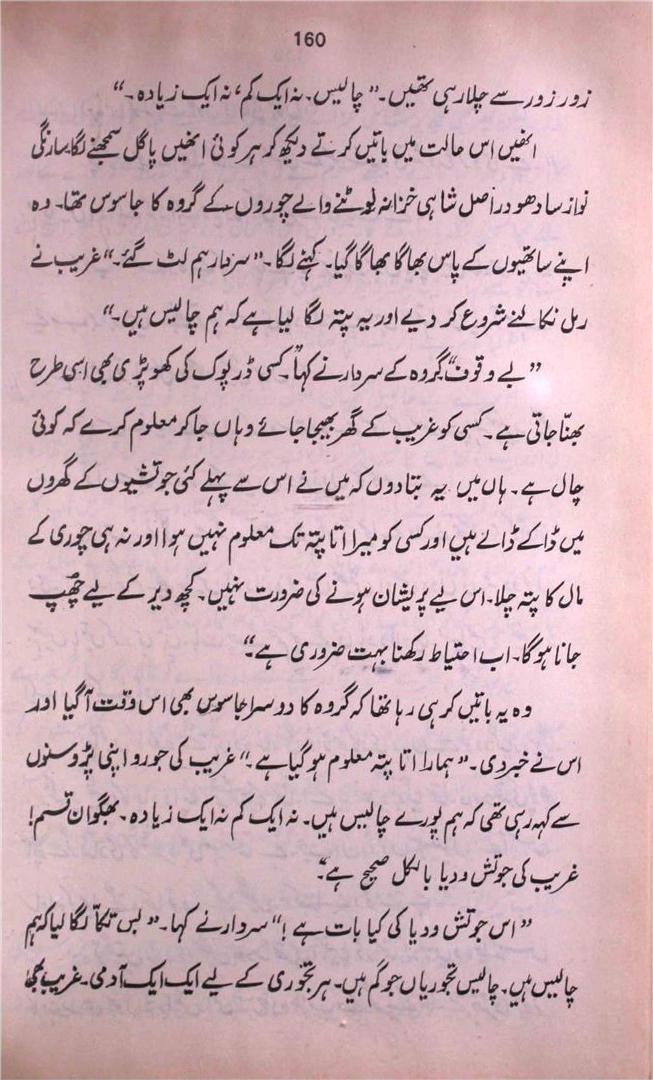 160
زور زور سے چلا رہی تھیں۔ ”چالیس۔ نہ ایک کم‘ نہ ایک زیادہ۔“
انھیں اس حالت میں باتیں کرتے دیکھ کر ہر کوئی انھیں پاگل سمجھنے لگا۔ سارنگی
نواز سادھو دراصل شاہی خزانہ لوٹنے والے چوروں کے گروہ کا جاسوس تھا۔ وہ
اپنے ساتھیوں کے پاس بھاگا بھاگا گیا۔ کہنے لگا۔ ”سردار ہم لٹ گئے۔“ غریب نے
رمل نکالنے شروع کر دیے اور یہ پتہ لگا لیا ہے کہ ہم چالیس ہیں۔“
”بے وقوف“ گروہ کے سردار نے کہا۔ ”کسی ڈرپوک کی کھوپڑی بھی اسی طرح
بھنّا جاتی ہے۔ کسی کو غریب کے گھر بھیجا جائے وہاں جا کر معلوم کرے کہ کوئی
چال ہے۔ ہاں میں یہ بتا دوں کہ میں نے اس سے پہلے کئی جوتشیوں کے گھروں
میں ڈاکے ڈالے ہیں اور کسی کو میرا اتا پتہ تک معلوم نہیں ہوا اور نہ ہی چوری کے
مال کا پتہ چلا۔ اس لیے پریشان ہونے کی ضرورت نہیں۔ کچھ دیر کے لیے چھپ
جانا ہوگا۔ اب احتیاط رکھنا بہت ضروری ہے“
وہ یہ باتیں کر ہی رہا تھا کہ گروہ کا دوسرا جاسوس بھی اس وقت آ گیا اور
اس نے خبر دی۔ ”ہمارا اتا پتہ معلوم ہو گیا ہے۔“ غریب کی جورو اپنی پڑوسنوں
سے کہہ رہی تھی کہ ہم پورے چالیس ہیں۔ نہ ایک کم نہ ایک زیادہ۔ بھگوان قسم!
غریب کی جوتش ودیا بالکل صحیح ہے“
”اس جوتش ودیا کی کیا بات ہے!“ سردار نے کہا۔ ”بس تکّا لگا لیا کہ ہم
چالیس ہیں۔ چالیس تجوریاں جو گم ہیں۔ ہر تجوری کے لیے ایک ایک آدمی۔ غریب بھی